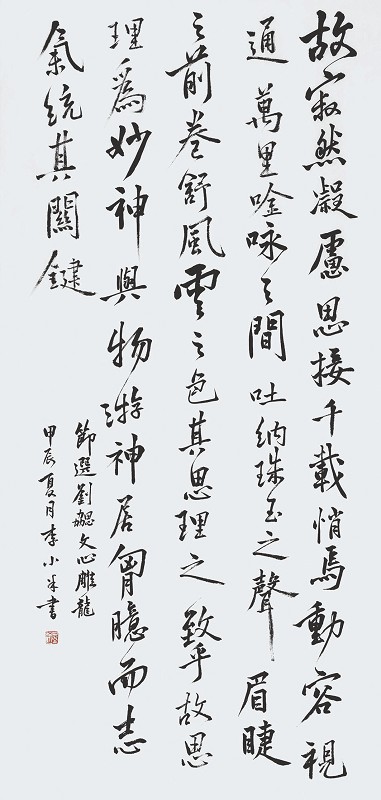 故寂然凝慮思接千載悄焉動容視
通萬里唫咏之間吐納珠玉之聲眉睫
之前卷舒風雲之色其思理之致乎故思
理爲妙神與物游神居胷臆而志
氣統其關鍵
節選劉勰文心雕龍
甲辰夏月李小書